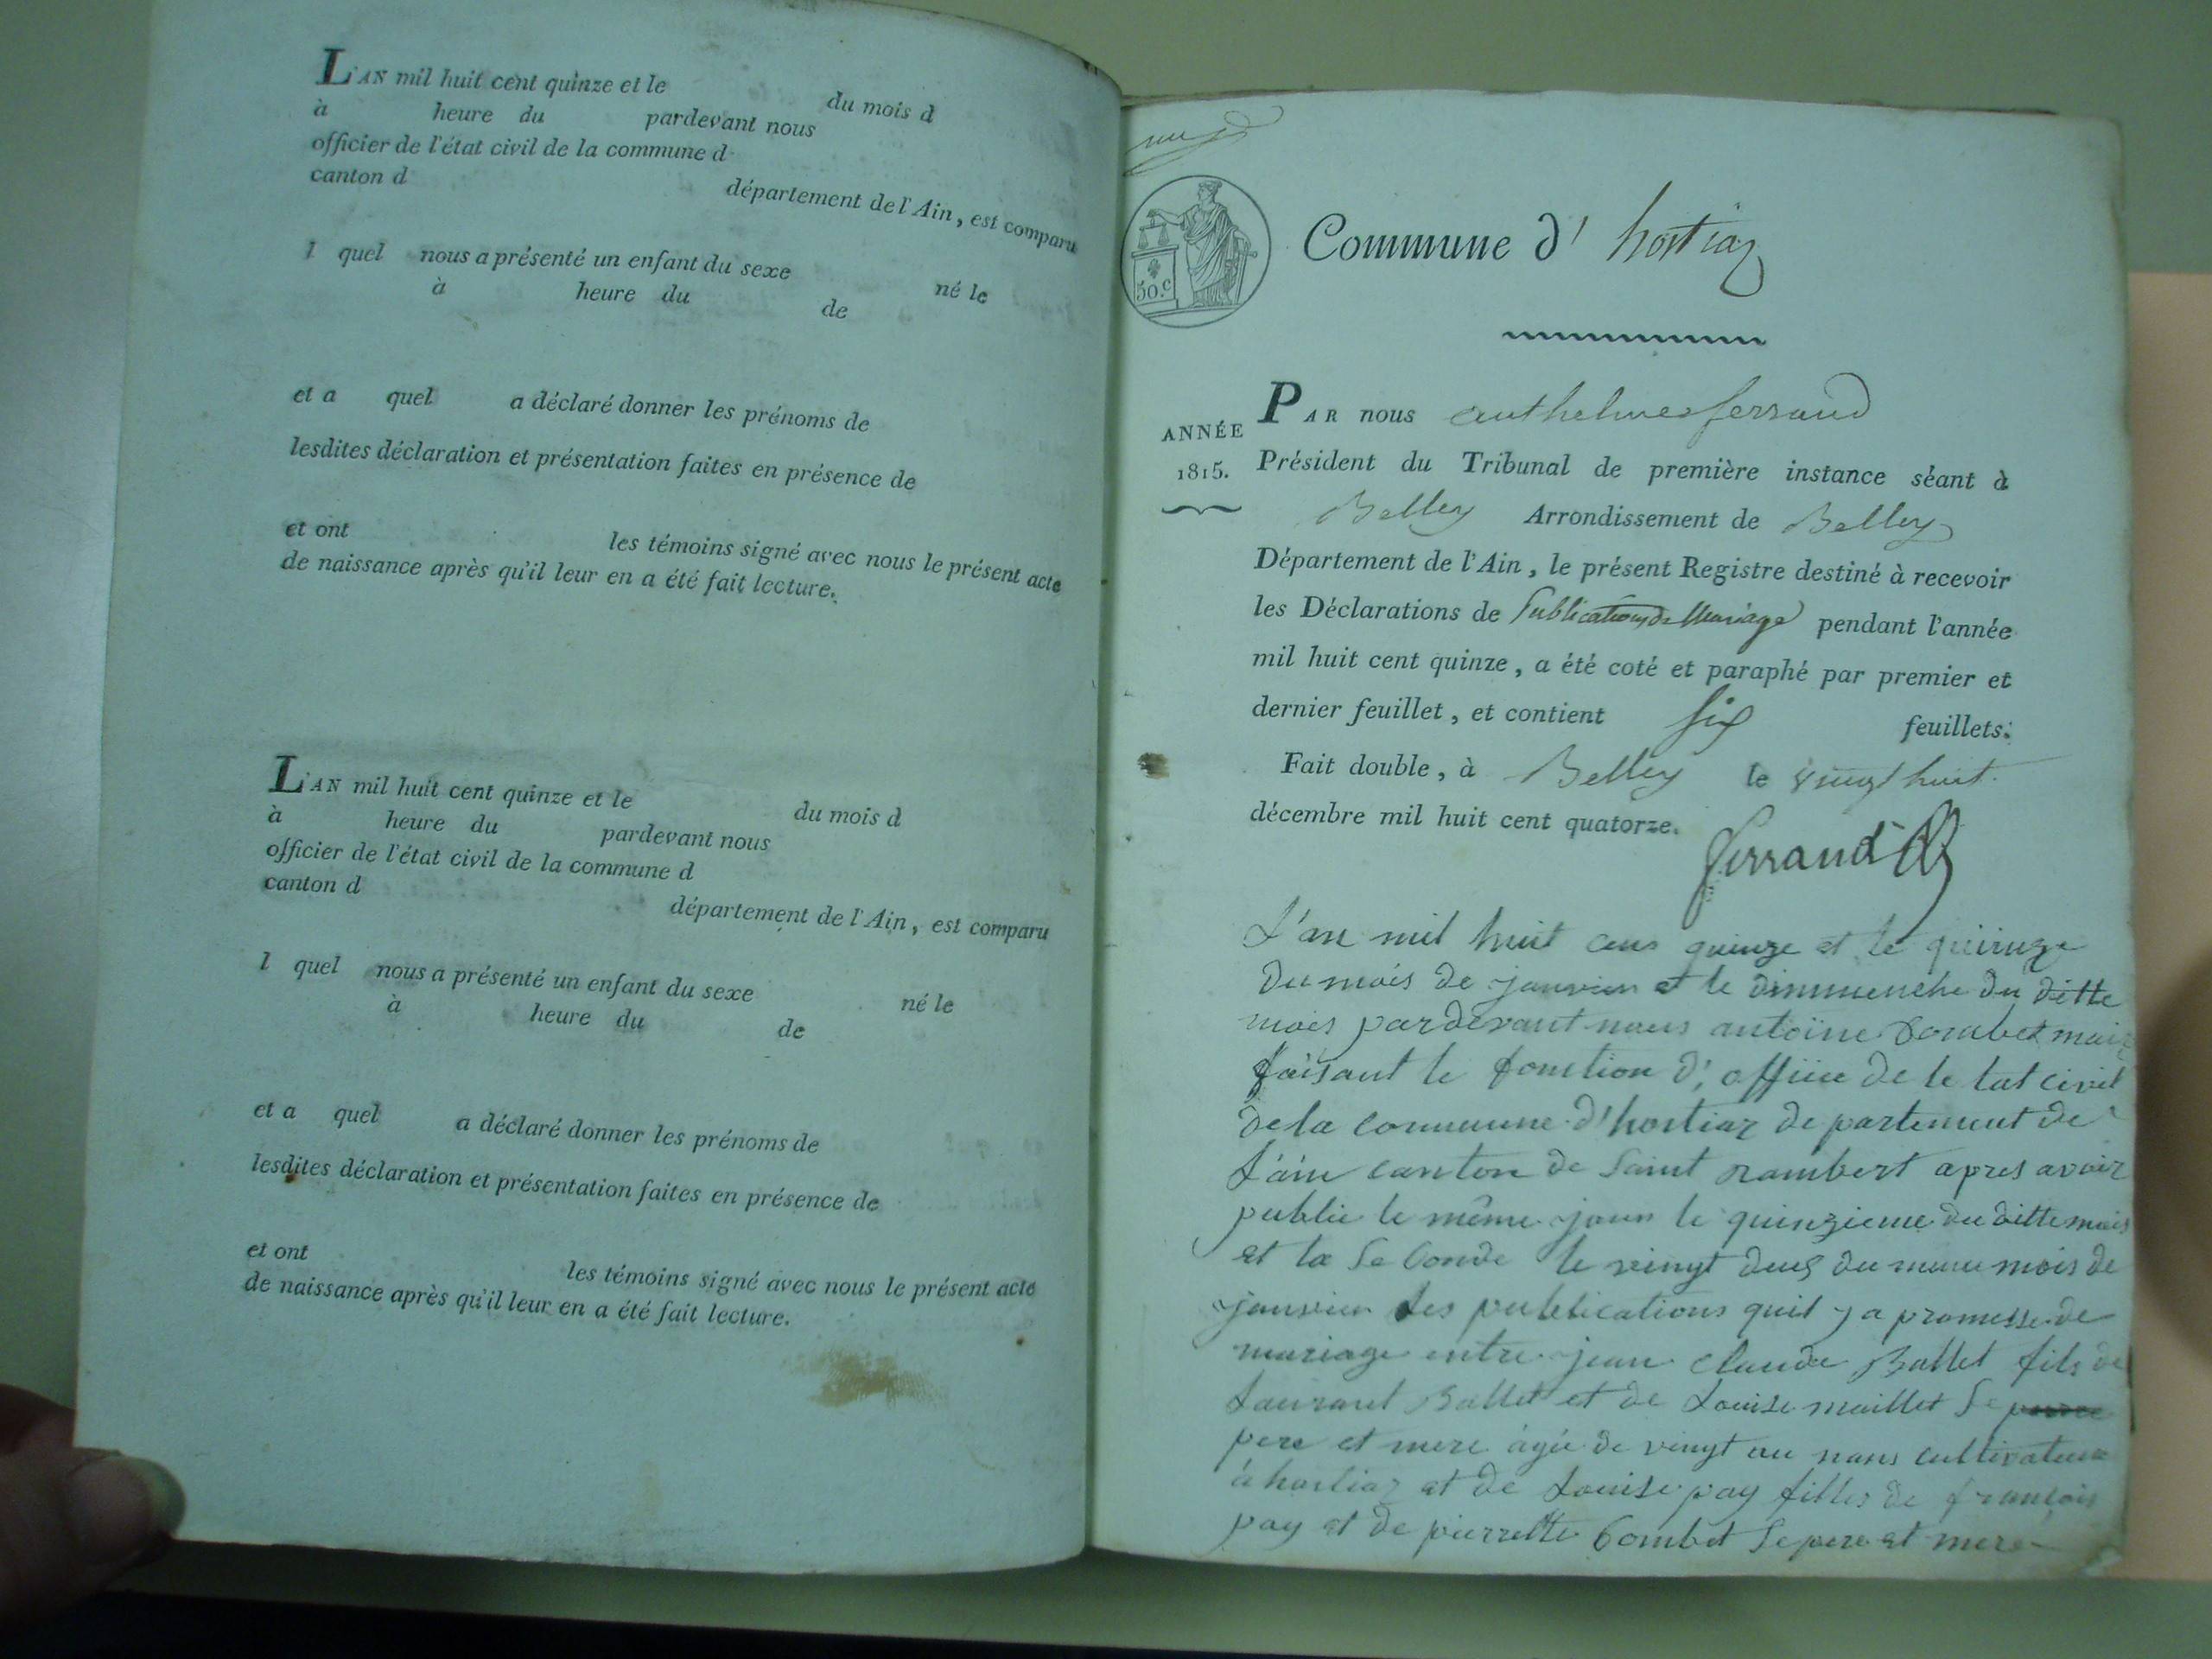 L'AN mil huit cent quinze et le du mois d
à heure du pardevant nous
officier de l'état civil de la commune d
canton d département de l'Ain, est comparu
l quel nous a présenté un enfant du sexe né le
à heure du de
et a quel a déclaré donner les prénoms de
lesdites déclaration et présentation faites en présence de
et ont les témoins signé avec nous le présent acte
de naissance après qu'il leur en a été fait lecture.
L'AN mil huit cent quinze et le du mois d
à heure du pardevant nous
officier de l'état civil de la commune d
canton d département de l'Ain, est comparu
l quel nous a présenté un enfant du sexe né le
à heure du de
et a quel a déclaré donner les prénoms de
lesdites déclaration et présentation faites en présence de
et ont les témoins signé avec nous le présent acte
de naissance après qu'il leur en a été fait lecture.
50.c
Commune d' hostiaz
ANNÉE
1815.
PAR nous anthelme ferrand
Président du Tribunal de première instance séant à
Belley Arrondissement de Belley
Département de l'Ain, le présent Registre destiné à recevoir
les Déclarations de Publications de Mariage pendant l'année
mil huit cent quinze, a été coté et paraphé par premier et
dernier feuillet, et contient six feuillets.
Fait double, à Belley le vingt huit
décembre mil huit cent quatorze.
ferrand
L'an mil huit cens quinze et le quinze
du mois de janvier et le dimmenche du ditte
mois pardevant nous antoine Bombet maire
faisant le fonction d', office de le tat civil
de la commune d'hostiaz de partement de
L'ain canton de saint rambert apres avoir
publie le même jour le quinzieme du ditte mois
et la se conde le vingt deus du meme mois de
janvier les publications quil y a promesse de
mariage entre jean claude Ballet fils de
Laurant Ballet et de Louise maillet Se
pere et mere âgée de vingt un nans cultivateur
à hostiaz et de Louise pay filles de françois
pay et de pierrette Bombet Se pere et mere